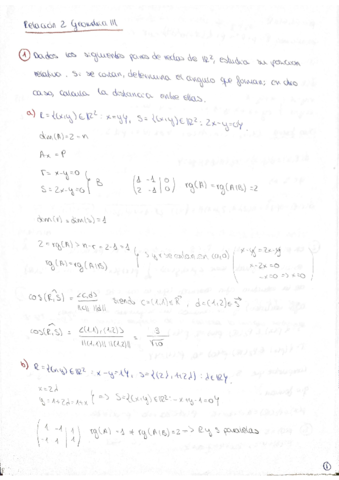 Relación 2 Geometría III
① Dados los siguientes pares de rectas de ℝ², estudia su posición
relativa. Si se cortan, determina el ángulo que forman; en otro
caso, calcula la distancia entre ellas.
a) R = {(x,y) ∈ ℝ² : x=y}, S = {(x,y) ∈ ℝ² : 2x-y=0}.
dim(A) = 2-n
Ax = P
r = x-y=0
S = 2x-y=0 } B (1 -1 | 0
2 -1 | 0) rg(A) = rg(A|B) = 2
dim(r) = dim(s) = 1
2 = rg(A) > n-r = 2-1 = 1
rg(A) = rg(A|B) } se cortan en (0,0) ( x-y = 2x-y
x-2x=0
-x=0 => x=0 )
cos(R,S) = <c,d> / ||c|| ||d|| siendo c=(1,1) ∈ R, d=(1,2) ∈ S
cos(R,S) = <(1,1),(1,2)> / ||(1,1)|| ||(1,2)|| = 3 / √10
b) R = {(x,y) ∈ ℝ² : x-y=1}, S = {(2λ, 1+2λ) : λ ∈ ℝ}.
x=2λ
y=1+2λ=1+x } => S = {(x,y) ∈ ℝ² : x-y-1=0}
(1 -1 | 1
-1 1 | 1) rg(A) = 1 ≠ rg(A|B) = 2 → R y S paralelas
①